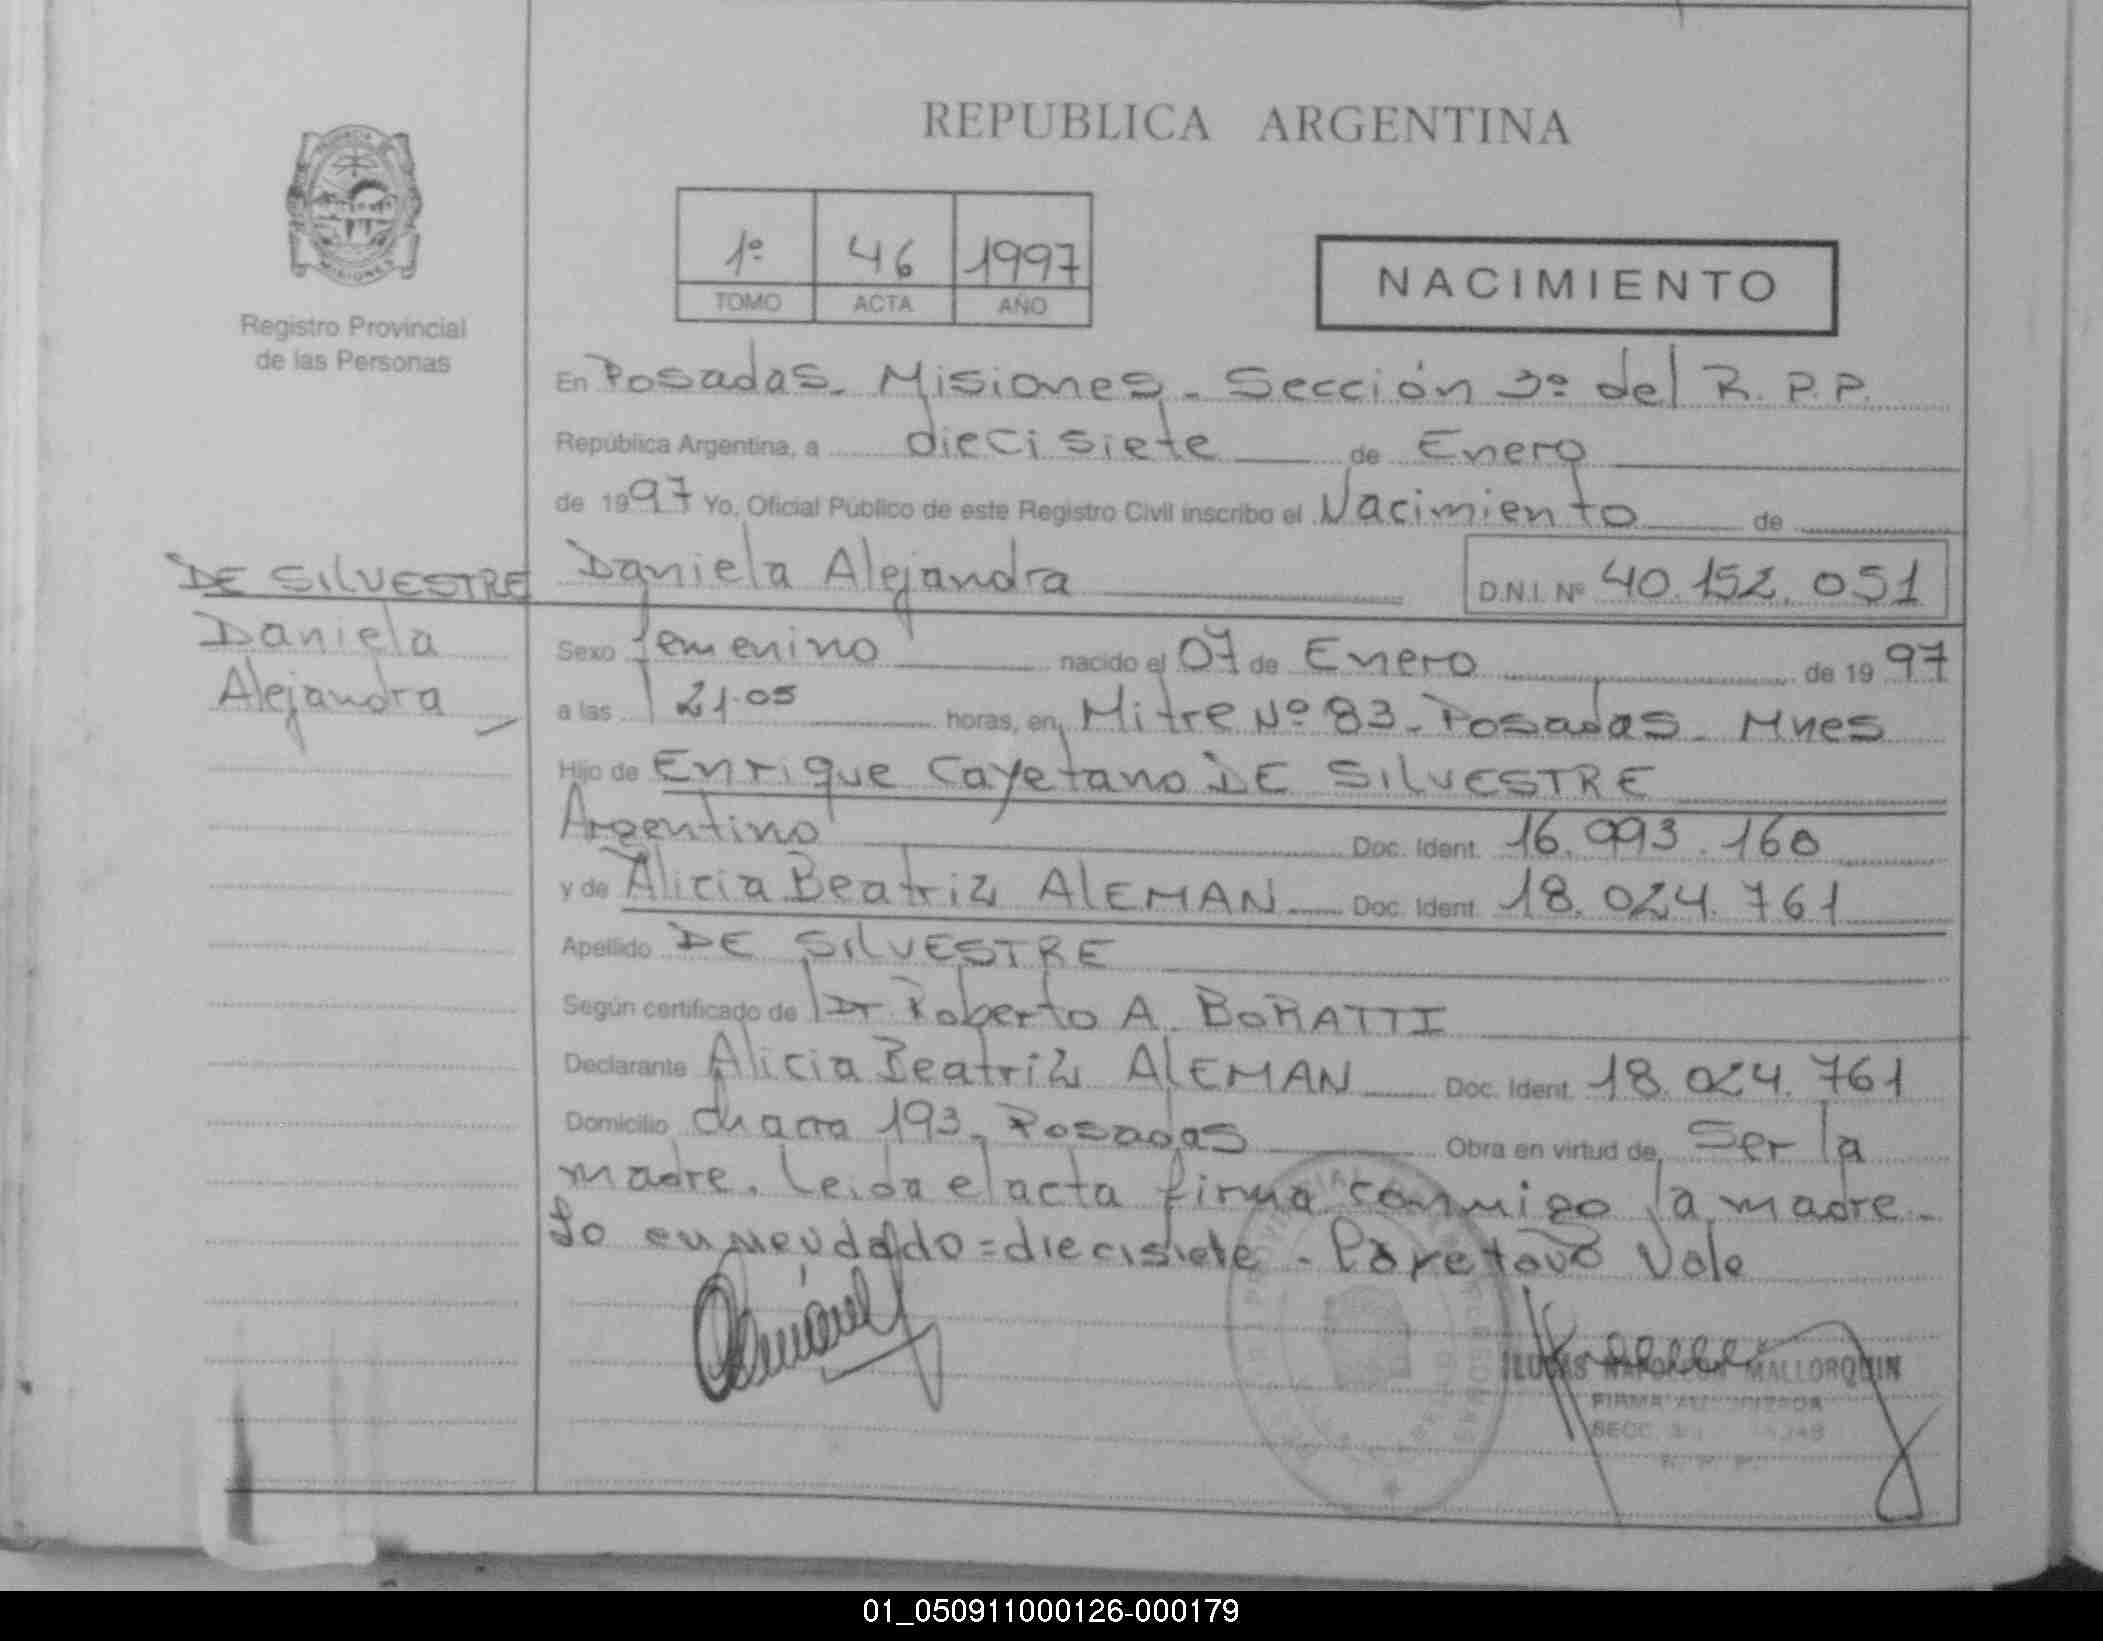 REPUBLICA ARGENTINA
PROVINCIA
MISIONES
Registro Provincial
de las Personas
1º 46 1997
TOMO ACTA AÑO
NACIMIENTO
En Posadas. Misiones. Sección 3º del R. P. P.
República Argentina, a diecisiete de Enero
de 1997 Yo, Oficial Público de este Registro Civil inscribo el Nacimiento de
Daniela Alejandra D.N.I. Nº 40.152.051
DE SILVESTRE
Daniela
Alejandra
Sexo femenino nacido el 07 de Enero de 1997
a las 21.05 horas, en Mitre Nº 83. Posadas. Mnes
Hijo de Enrique Cayetano DE SILVESTRE
Argentino Doc. Ident. 16.993.160
y de Alicia Beatriz ALEMAN Doc. Ident. 18.024.761
Apellido DE SILVESTRE
Según certificado de Dr Roberto A. BORATTI
Declarante Alicia Beatriz ALEMAN Doc. Ident. 18.024.761
Domicilio chacra 193. Posadas Obra en virtud de Ser la
madre. Leida el acta firma conmigo la madre.
Lo enmendado = diecisiete - Vale
LUCAS NAPOLEON MALLORQUIN
FIRMA AUTORIZADA
SECC.
R. P. P.
01_050911000126-000179